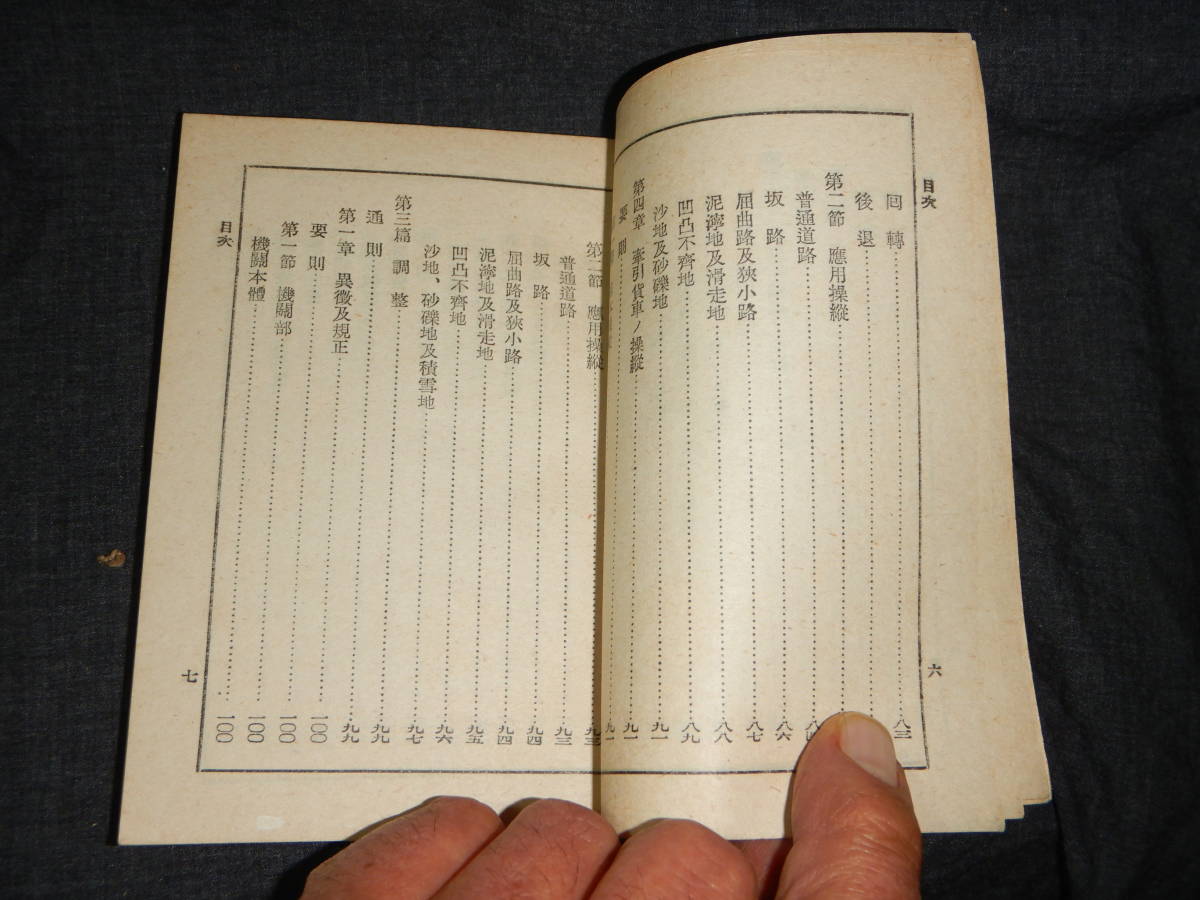 目次
回轉……八三
後退……
第二節 應用操縱……
普通道路……八
坂路……八六
屈曲路及狹小路……八七
泥濘地及滑走地……八八
凹凸不齊地……八九
沙地及砂礫地……九一
第四章 牽引貨車ノ操縱……九一
要則……九一
六
第二節 應用操縱……九三
普通道路……九三
坂路……九四
屈曲路及狹小路……九四
泥濘地及滑走地……九五
凹凸不齊地……九六
沙地、砂礫地及積雪地……九七
第三篇 調整
通則……九九
第一章 異徵及規正……九九
要則……一〇〇
第一節 機關部……一〇〇
機關本體……一〇〇
……一〇〇
目次
七